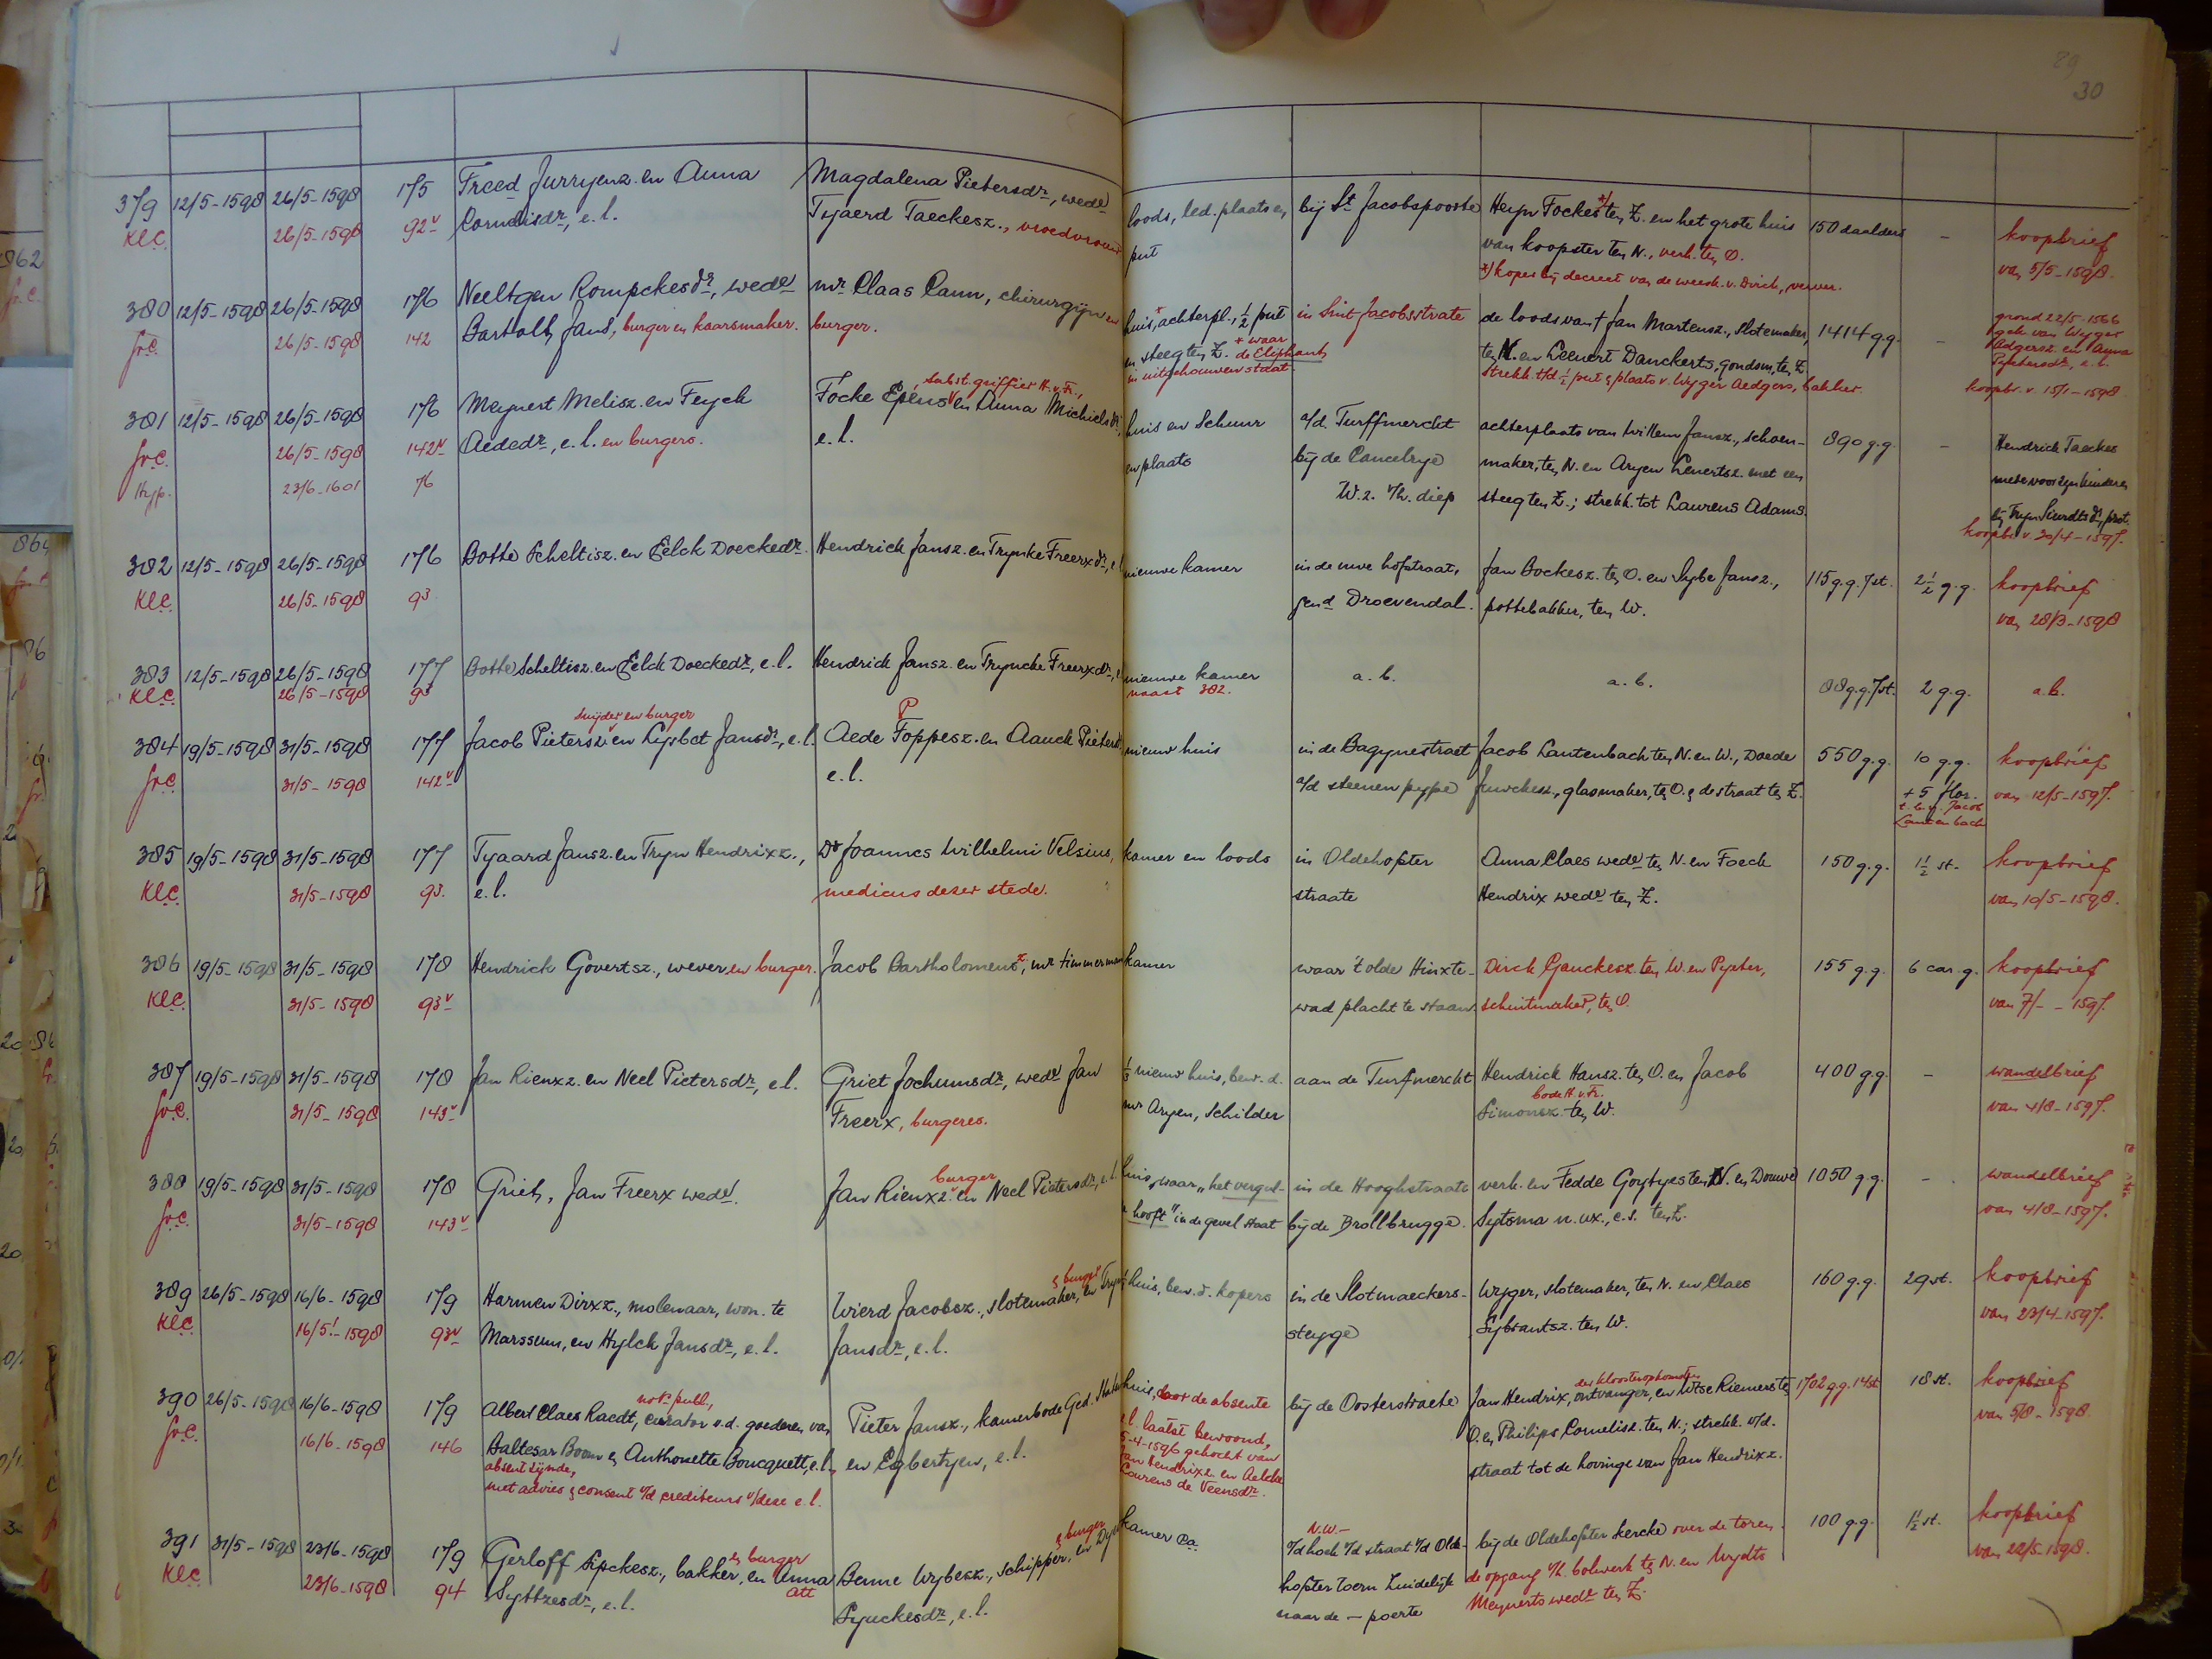 30
379 12/5-1598 26/5-1598 175 Freed Jurryenz. en Anna Magdalena Pietersdr, wede loods, led. plaats en bij St Jacobspoorte Heyn Fockes *) ten Z. en het grote huis 150 daalders - koopbrief
Kl.C. 26/5-1598 92v Cornelisdr, e.l. Tyaerd Taeckesz., vroedvrouw put van koopster ten N., verh. ten O. van 5/5-1598.
*) koper bij decreet van de weesk. v. Dirck, verver.
380 12/5-1598 26/5-1598 176 Neeltgen Rompckesdr, wede mr Claas Cann, chirurgijn en huis,* achterpl., ½ put in Sint Jacobsstrate de loods van † Jan Martensz., slotemaker, 1414 g.g. - grond 22/5-1566
Gr.C. 26/5-1598 142 Bartolt Jans, burger en kaarsmaker. burger. en steeg ten Z. * waar de Eliphant ten N. en Leenert Danckerts, goudsm, ten Z. gek. van Wyger Aedgersz. en Anna Pytersdr, e.l.
in uitgehouwen staat. strekk. t/d ½ put & plaats v. Wyger Aedgers, bakker. koopbr. v. 15/1-1598
381 12/5-1598 26/5-1598 176 Meynert Melisz. en Feyck Focke Epens, subst. griffier H.v.Fr., en Anna Michielsdr, huis en schuur a/d Turffmerckt achterplaats van Willem Jansz., schoen- 890 g.g. - Hendrick Taeckes
Gr.C. 26/5-1598 142v Aededr, e.l. en burgers. e.l. en plaats bij de Cancelrye maker, ten N. en Aryen Lenertsz. met een mede voor zijn kinderen
Hyp. 23/6-1601 76 W.z. v/h. diep steeg ten Z.; strekk. tot Laurens Adams. bij Tryn Sierdtsdr, prot.
koopbr. v. 30/4-1597.
382 12/5-1598 26/5-1598 176 Botte Scheltisz. en Eelck Doeckedr. Hendrick Jansz. en Trynke Freerxdr, e.l. nieuwe kamer in de nwe hofstraat, Jan Bockesz. ten O. en Sybe Jansz., 115 g.g. 7 st. 2½ g.g. koopbrief
Kl.C. 26/5-1598 93 gend Droevendal. pottebakker, ten W. van 28/3-1598
383 12/5-1598 26/5-1598 177 Botte Scheltisz. en Eelck Doeckedr, e.l. Hendrick Jansz. en Tryncke Freerxdr, nieuwe kamer a.b. a.b. 88 g.g. 7 st. 2 g.g. a.b.
Kl.C. 26/5-1598 93 naast 382.
384 19/5-1598 31/5-1598 177 Jacob Pietersz, snijder en burger en Lysbet Jansdr, e.l. Aede Foppesz. en Aauck Pieters nieuw huis in de Bagynestraet Jacob Lautenbach ten N. en W., Doede 550 g.g. 10 g.g. koopbrief
Gr.C. 31/5-1598 142v e.l. a/d steenen pype Juwckesz., glasmaker, ten O. & de straat ten Z. + 5 flor. van 12/5-1597.
t.b.v. Jacob Lautenbach
385 19/5-1598 31/5-1598 177 Tyaard Jansz. en Tryn Hendrixz., Dr Joannes Wilhelmi Velsius, kamer en loods in Oldehofster Anna Claes wede ten N. en Foeck 150 g.g. 1½ st. koopbrief
Kl.C. 31/5-1598 93. e.l. medicus deser stede. straate Hendrix wede ten Z. van 10/5-1598.
386 19/5-1598 31/5-1598 178 Hendrick Govertsz., wever en burger. Jacob Bartholomeusz, mr timmerman kamer waar 't olde Hinxte- Dirck Gauckesz. ten W. en Pyeter, 155 g.g. 6 car. g. koopbrief
Kl.C. 31/5-1598 93v wad placht te staan. schuitmaker, ten O. van 7/- - 1597.
387 19/5-1598 31/5-1598 178 Jan Rienxz. en Neel Pietersdr, e.l. Griet Jochumsdr, wede Jan nieuw huis, bew. d. aan de Turfmerckt Hendrick Hansz. ten O. en Jacob 400 g.g. - wandelbrief
Gr.C. 31/5-1598 143v Freerx, burgeres. mr Aryen, schilder Simonsz. bode H.v.Fr. ten W. van 4/8-1597.
388 19/5-1598 31/5-1598 178 Griet, Jan Freerx wede. Jan Rienxz burger en Neel Pietersdr, e.l. huis, waar "het vergul- in de Hooghstraate verk. en Fedde Goytyes ten N. en Douwe 1050 g.g. - wandelbrief
Gr.C. 31/5-1598 143v hooft" in de gevel staat bij de Brollbrugge. Sytsma n. ux., c.s. ten Z. van 4/8-1597.
389 26/5-1598 16/6-1598 179 Harmen Dirxz., molenaar, won. te Wierd Jacobsz., slotemaker, & burger en Tryn huis, bew. d. kopers in de Slotmaeckers- Wyger, slotemaker, ten N. en Claes 160 g.g. 29 st. koopbrief
Kl.C. 16/5!-1598 93v Marssum, en Hylck Jansdr, e.l. Jansdr, e.l. stegge Sybrantsz. ten W. van 23/4-1597.
390 26/5-1598 16/6-1598 179 Albert Claes Raedt, not. publ., curator o.d. goederen van Pieter Jansz., kamerbode Ged. Staten huis, door de absente bij de Oosterstraete Jan Hendrix, ontvanger, en kloosteropkomsten en Wtse Riemers ten 1702 g.g. 14 st 18 st. koopbrief
Gr.C. 16/6-1598 146 Baltesar Boom & Anthonette Boucquett, e.l., en Egbertyen, e.l. e.l. laatst bewoond, O. en Philips Cornelisz. ten N.; strekk. v/d. van 5/8-1598.
absent zijnde, 5-4-1596 gekocht van straat tot de hovinge van Jan Hendrixz.
met advies & consent v/d crediteurs v/deze e.l. Jan Hendrixz. en Aelcke Lourens de Veensdr.
391 31/5-1598 23/6-1598 179 Gerloff Sipckesz., bakker, & burger en Anna Benne Wybesz., schipper, & burger en kamer ca. N.W.- o/d hoek v/d straat v/d Olde- bij de Oldehofster kercke over de toren. 100 g.g. 1½ st. koopbrief
Kl.C. 23/6-1598 94 Syttzesdr, e.l. Att Syuckesdr, e.l. hofster toern zuidelijk de opgang v/h. bolwerk ten N. en Wydts van 22/5-1598.
naar de - poerte Meynerts wede ten Z.